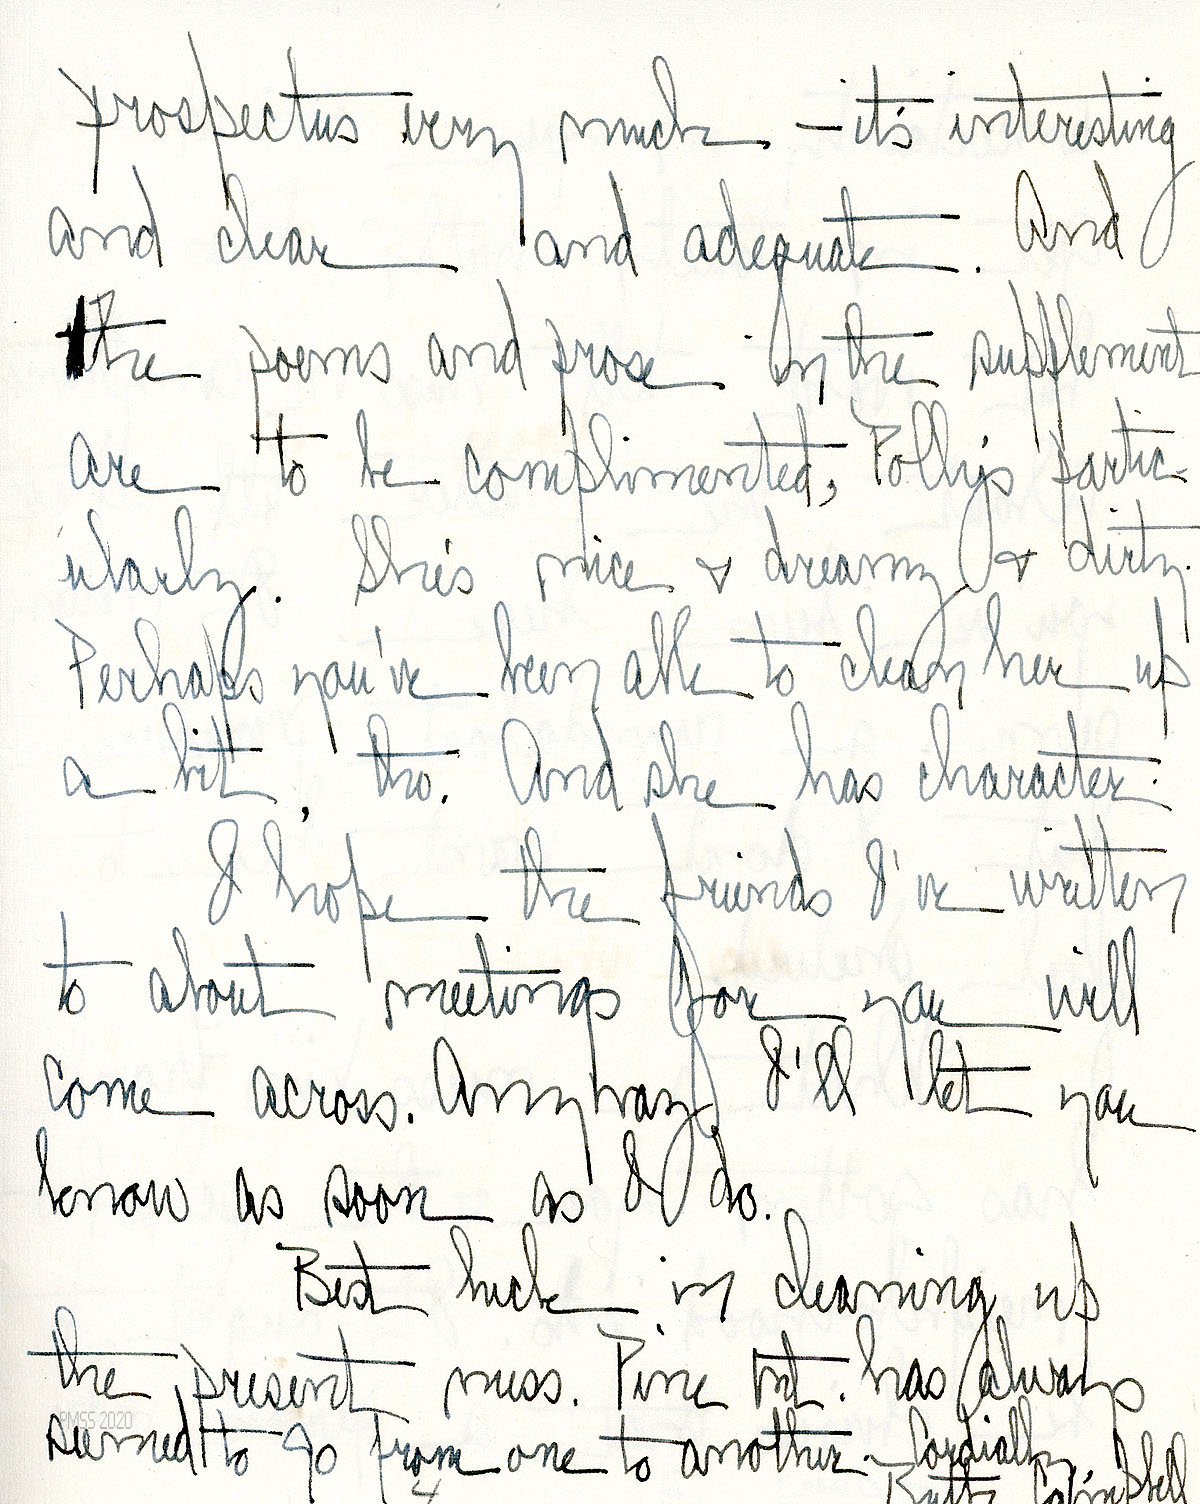 prospectus very much – it's interesting
and clear and adequate. And
the poems and prose in the supplement
are to be complimented, Polly's partic-
ularly. She's nice & dreamy & dirty.
Perhaps you've been able to clean her up
a bit, tho. And she has character.
I hope the friends I've written
to about meetings for you will
come across. Anyway, I'll let you
know as soon as I do.
Best luck in cleaning up
the present mess. Pine Mt. has always
PMSS 2020
seemed to go from one to another – Cordially,
Campbell
4